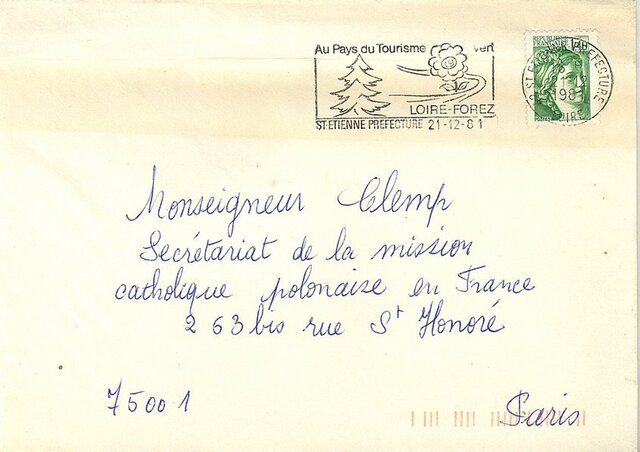 Au Pays du Tourisme vert
LOIRE-FOREZ
ST-ETIENNE PREFECTURE 21-12-81
ST ETIENNE PREFECTURE
LOIRE
REPUBLIQUE
FRANCAISE
Monseigneur Clemp
Secrétariat de la mission
catholique polonaise en France
263 bis rue St Honoré
75001 Paris